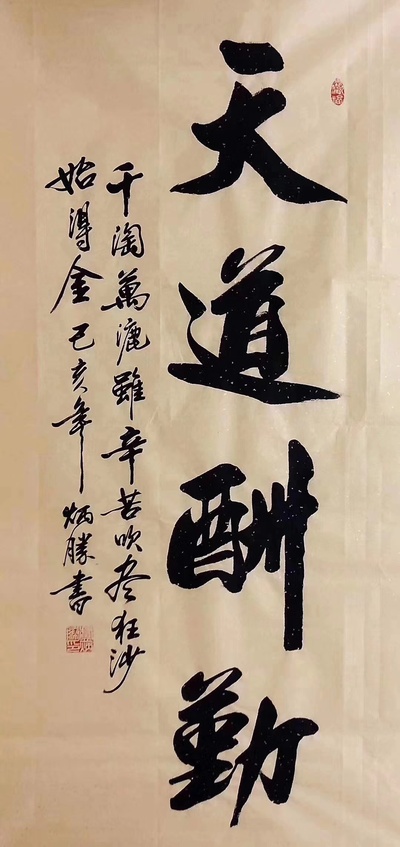 天道酬勤
千淘萬漉雖辛苦吹尽狂沙
始得金己亥年炳勝書